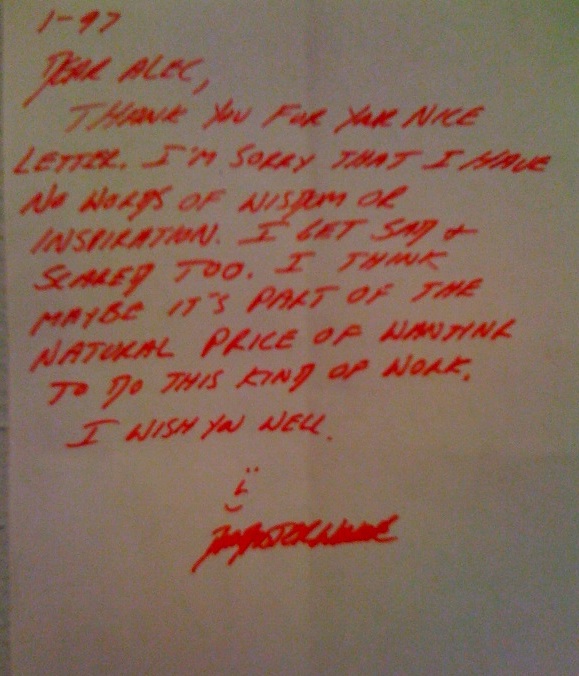 1-97
DEAR ALEC,
THANK YOU FOR YOUR NICE
LETTER. I'M SORRY THAT I HAVE
NO WORDS OF WISDOM OR
INSPIRATION. I GET SAD &
SCARED TOO. I THINK
MAYBE IT'S PART OF THE
NATURAL PRICE OF WANTING
TO DO THIS KIND OF WORK.
I WISH YOU WELL.